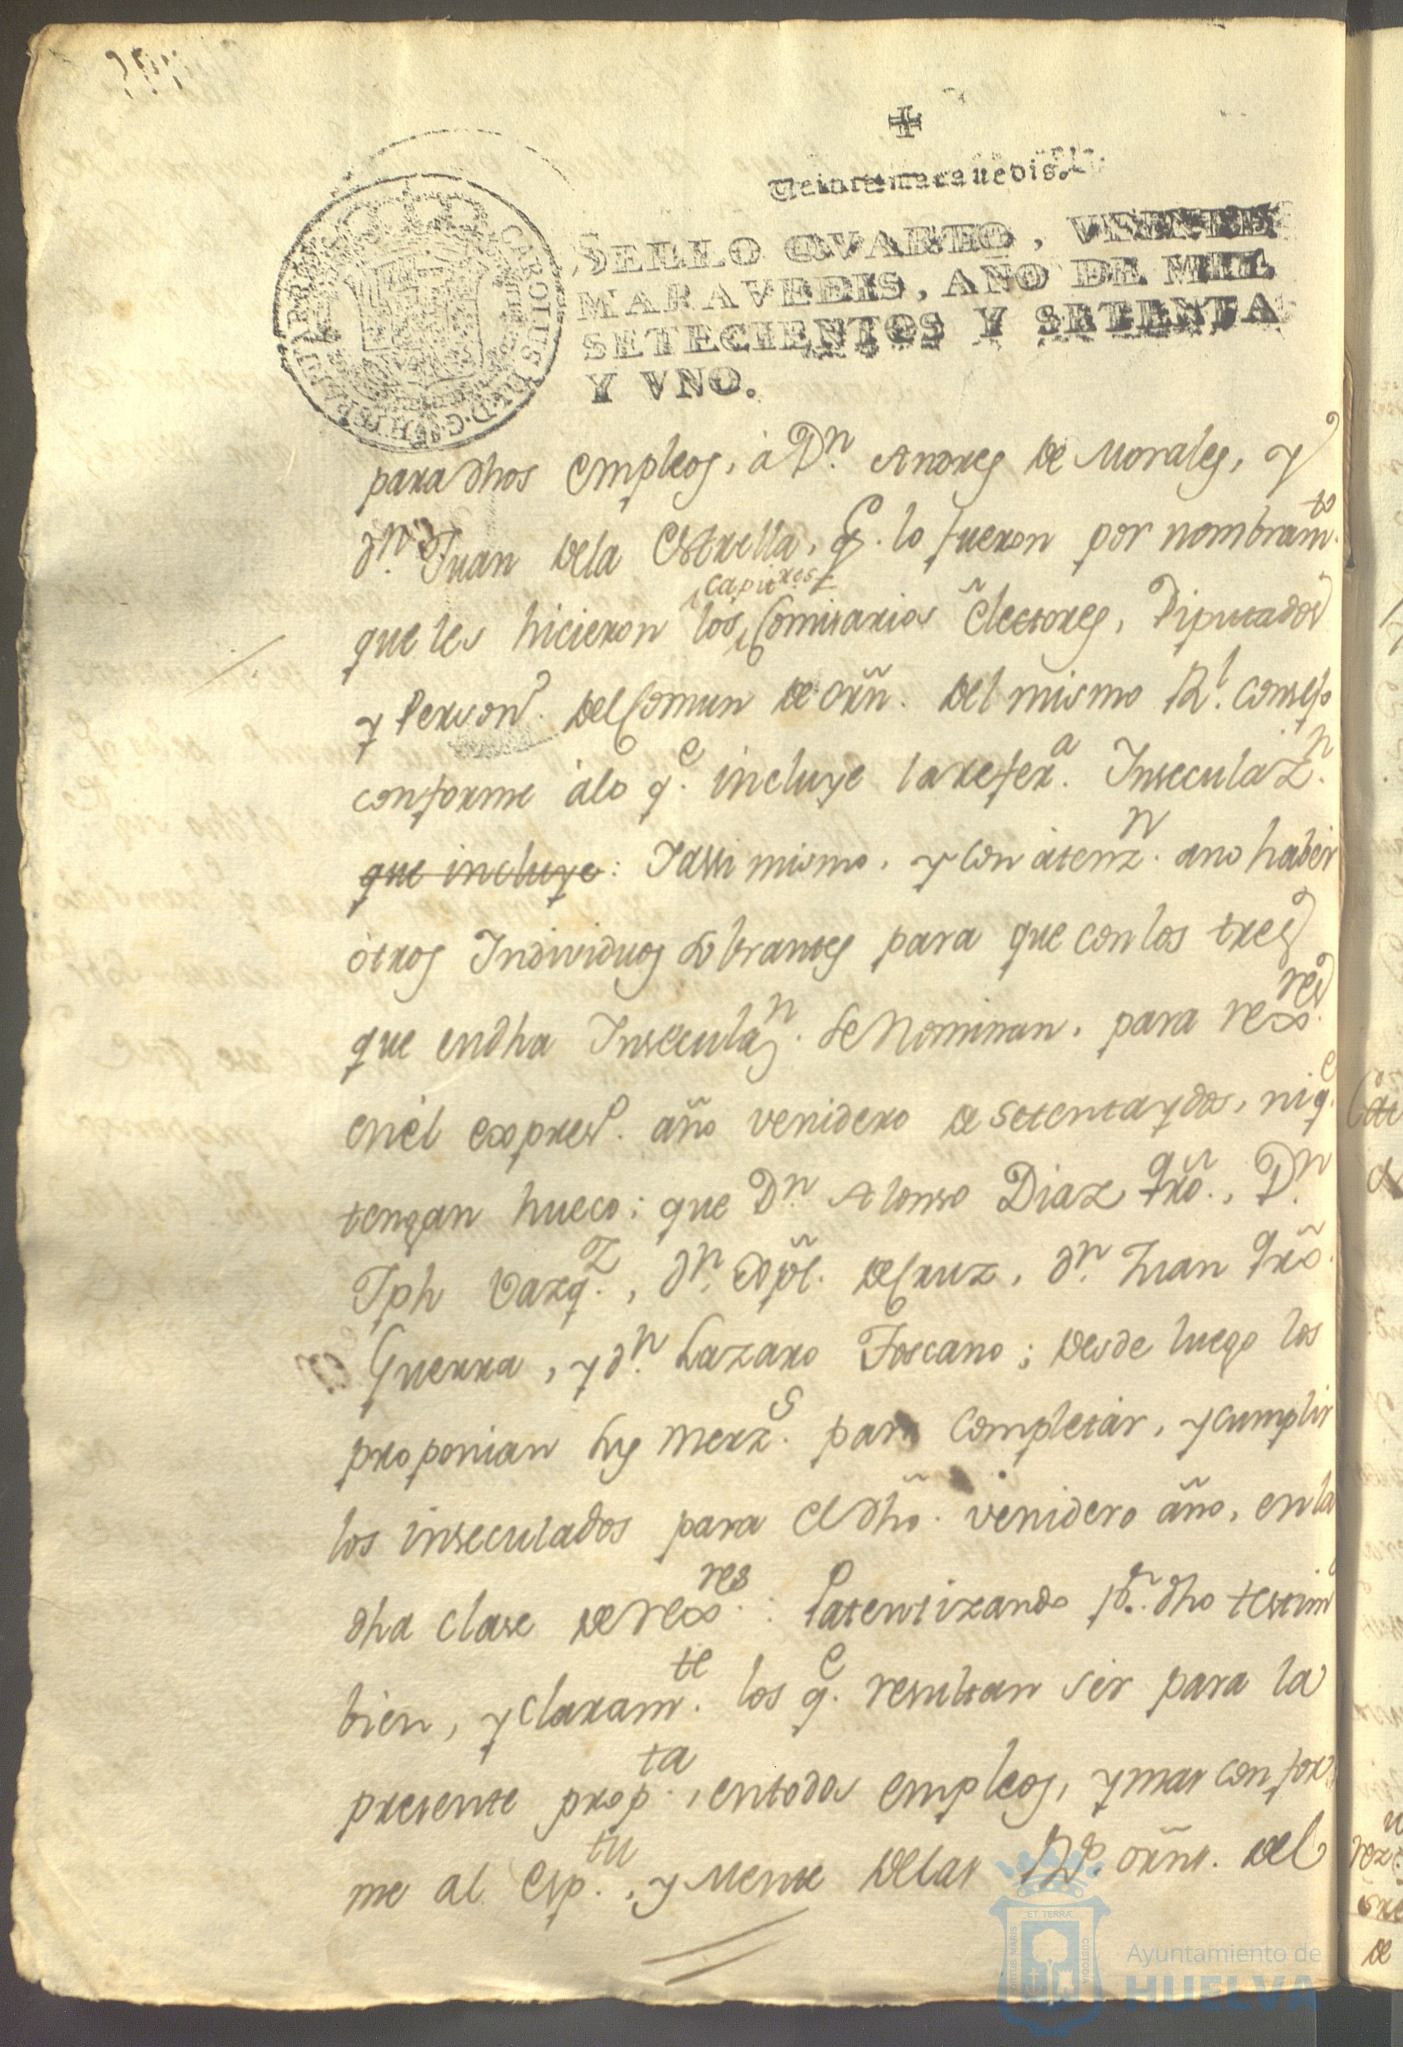 Veinte maravedis.
SELLO QVARTO, VEINTE
MARAVEDIS, AÑO DE MIL
SETECIENTOS Y SETENTA
Y VNO.
CAROLUS III D.G. HISPANIAR
para dhos empleos, à Dn. Andres de Morales, y
dn. Juan dela Estrella, q. lo fueron por nombramto.
capitres
que les hicieron los Comisarios Electores, Diputados
y Person.o del Comun de orñ. del mismo Rl. Consejo
conforme álo qe. incluye la refera. Inseculazn.
que incluye: Iassi mismo, y con atenzn. ano haber
otros Individuos sobrantes para que con los tres
que endha Inseculan. se Nominan, para rexres.
enél expreso. año venidero de setenta y dos, ni qe.
tengan hueco; que Dn. Alonso Diaz Qrõ., Dn.
Jph Vazqz., dn. Xpl. de Cruz, dn. Juan Qrõ.
Guerra, y dn. Lazaro Toscano; desde luego los
proponian sus merzs. para completar, y cumplir
los inseculados para el dho. venidero año, en la
dha clase de rexres.: Patentizando pr. dho testimo
bien, y claramte. los qe. resultan ser para la
presente propta., entodos empleos, y mas confor
me al Esptu., y Mente delas Rs. orñs. del
ET TERRÆ
PORTUS MARIS
CUSTODIA
Ayuntamiento de
HUELVA